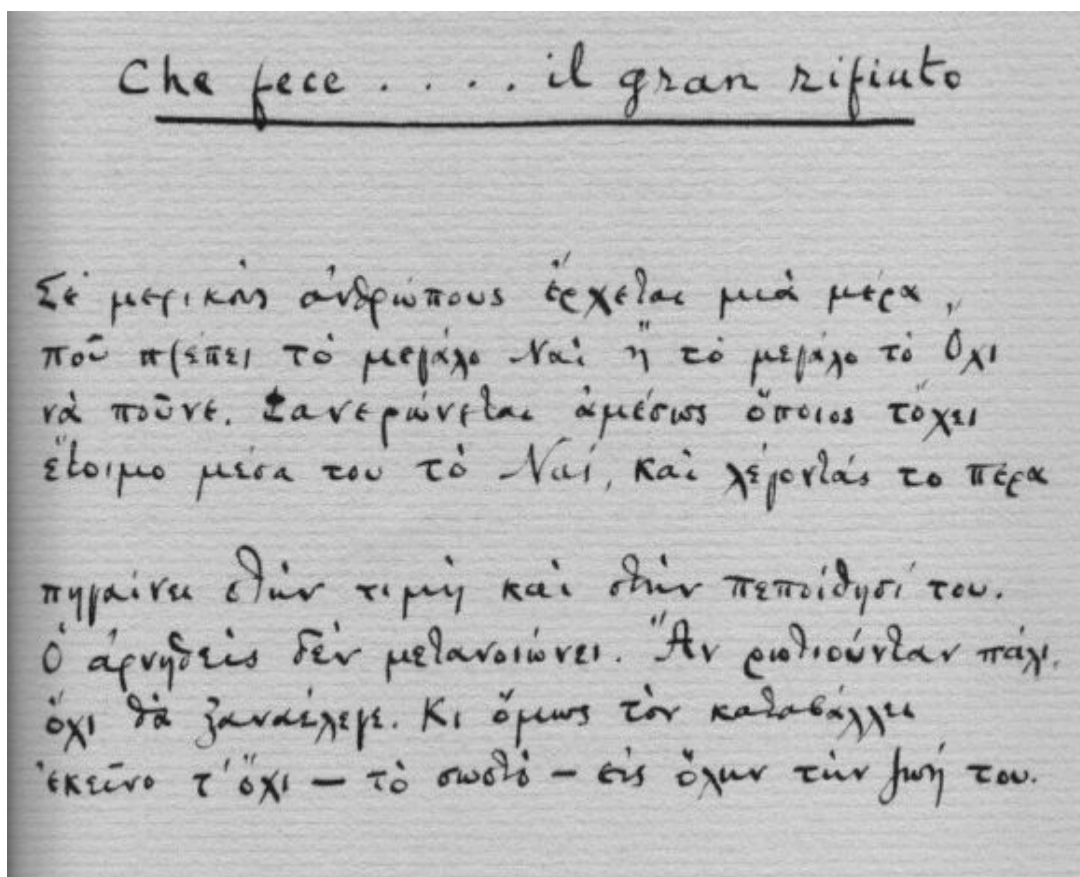 Che fece . . . . il gran rifiuto
Σὲ μερικοὺς ἀνθρώπους ἔρχεται μιὰ μέρα
ποῦ πρέπει τὸ μεγάλο Ναὶ ἢ τὸ μεγάλο τὸ Ὄχι
νὰ ποῦνε. Φανερώνεται ἀμέσως ὅποιος τὄχει
ἕτοιμο μέσα του τὸ Ναί, καὶ λέγοντάς το πέρα
πηγαίνει στὴν τιμὴ καὶ στὴν πεποίθησί του.
Ὁ ἀρνηθεὶς δὲν μετανοιώνει. Ἂν ρωτιοῦνταν πάλι,
ὄχι θὰ ξαναέλεγε. Κι ὅμως τὸν καταβάλλει
ἐκεῖνο τ' ὄχι — τὸ σωστό — εἰς ὅλην τὴν ζωή του.